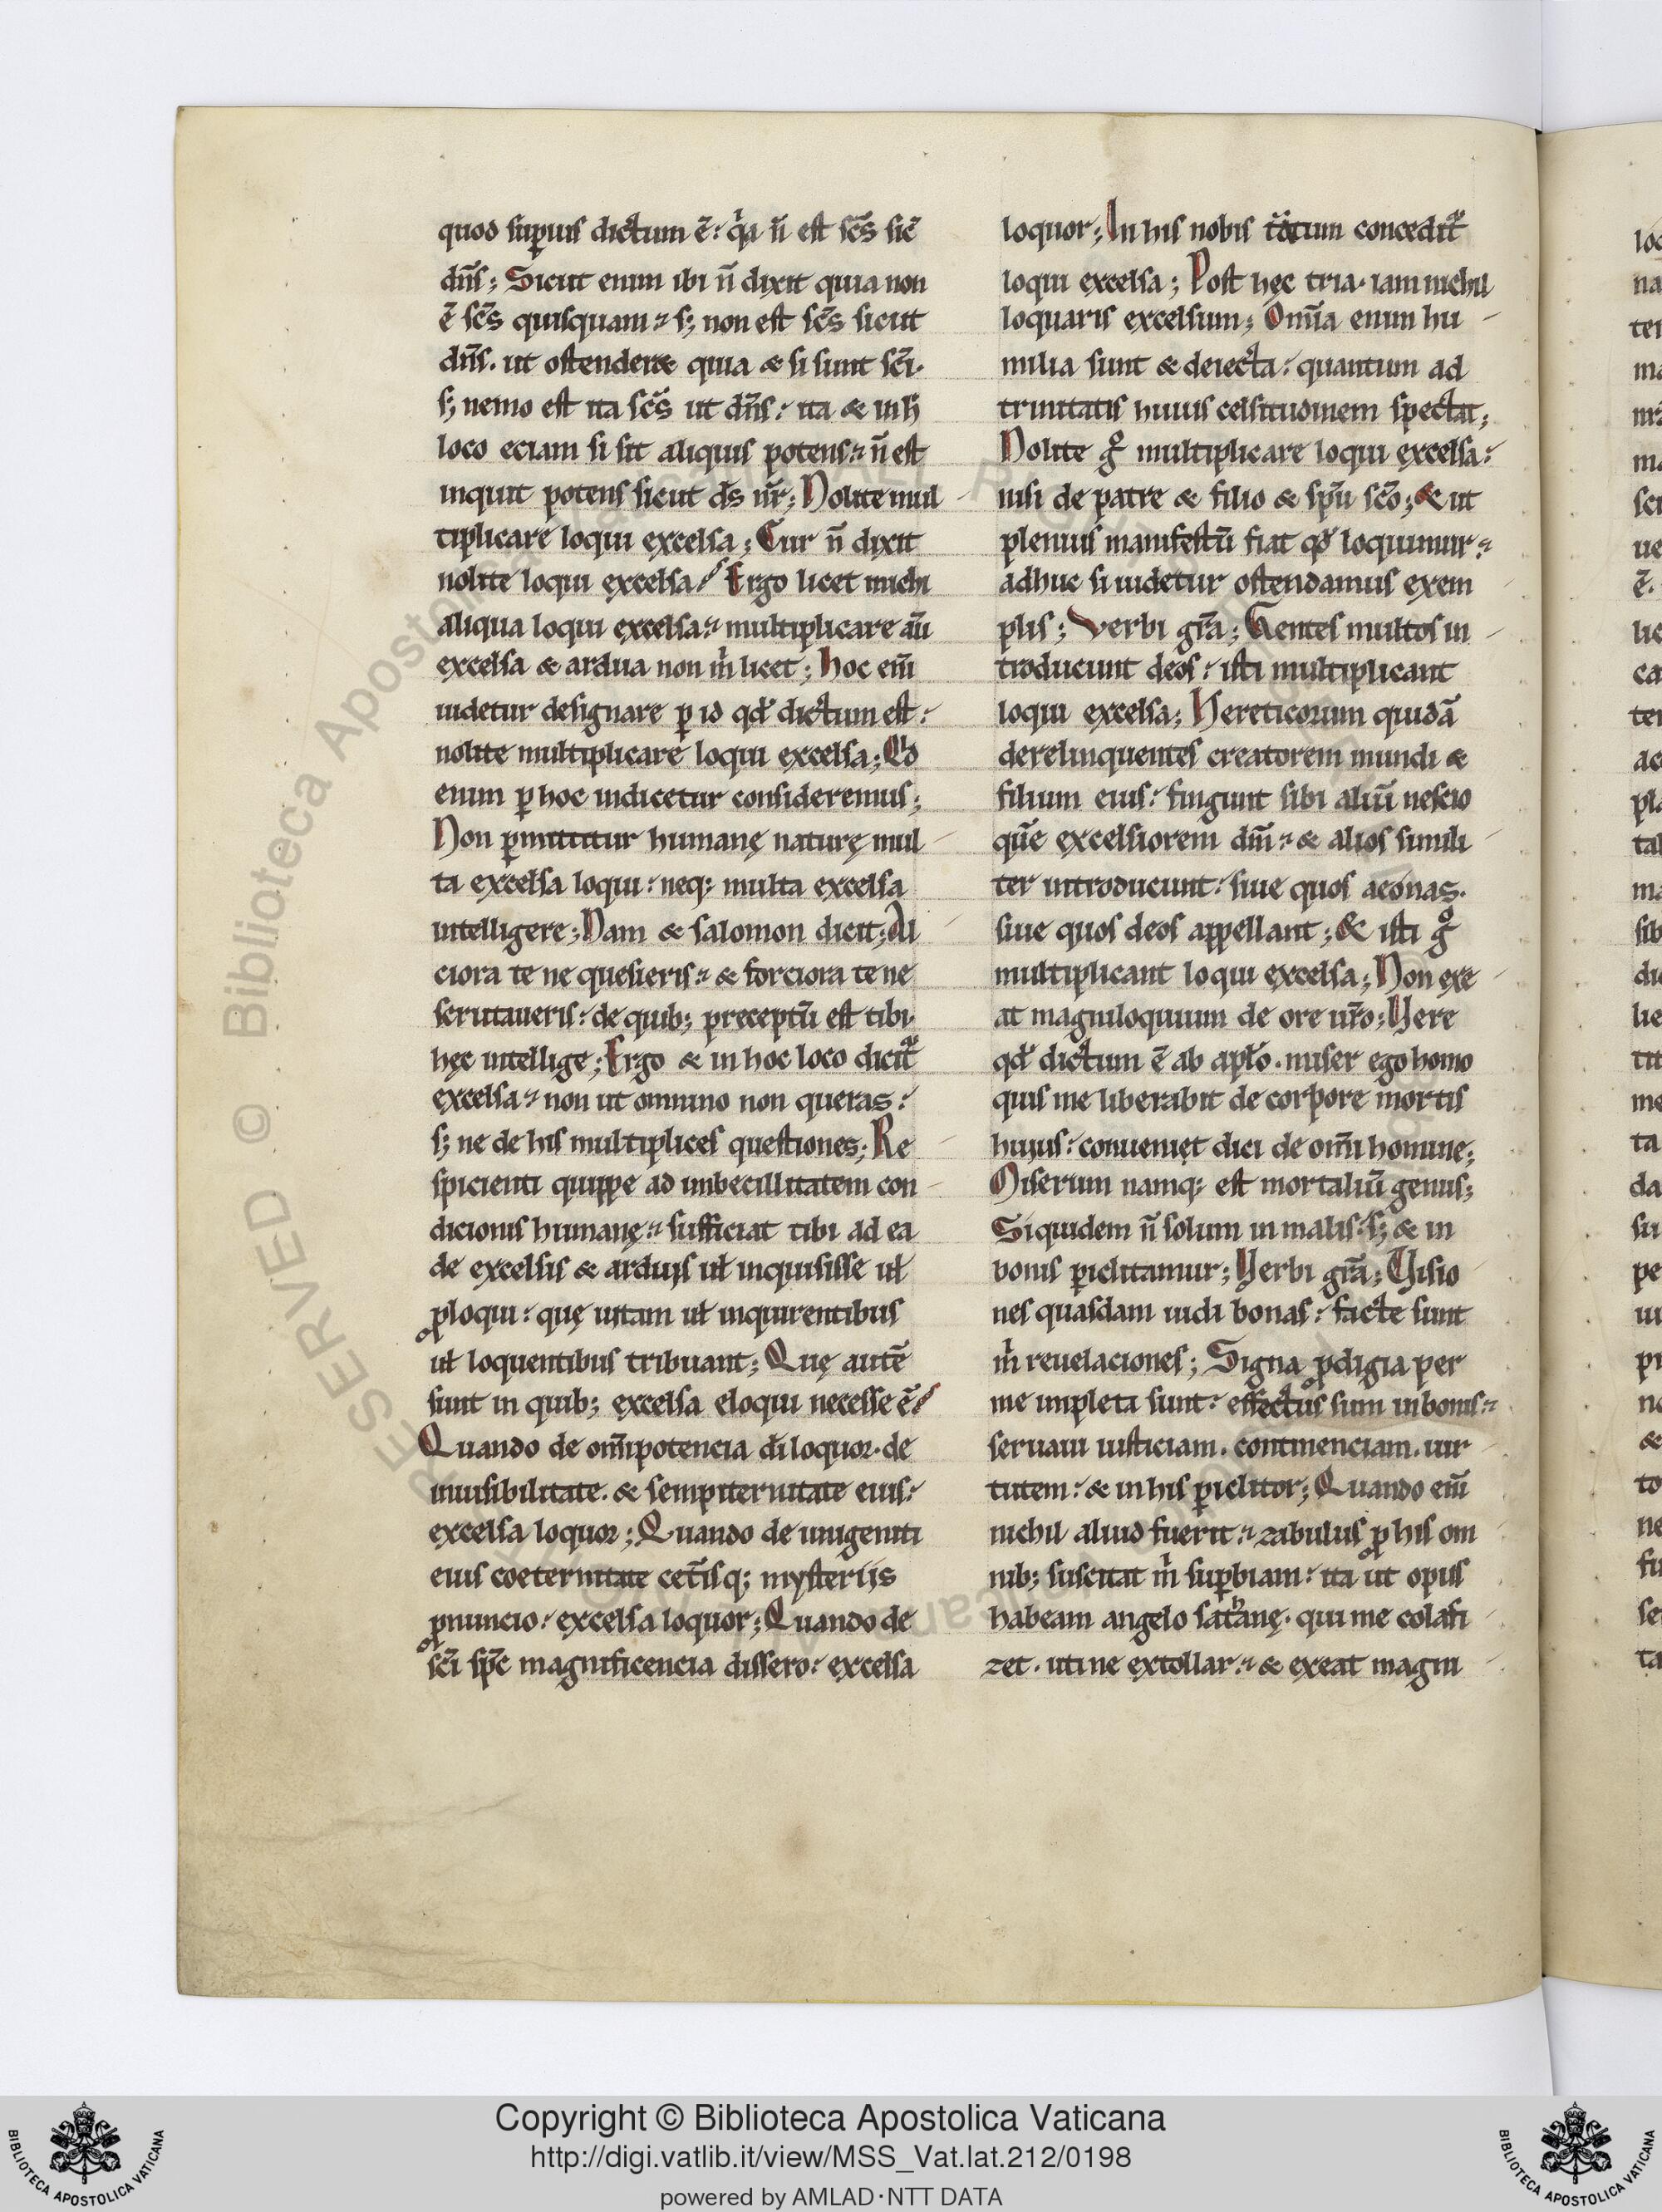 quod sup̲ius dictum ē: q̍a n̄ est sc̄s sic̄
dn̄s; Sicut enim ibi n̄ dixit quia non
ē sc̄s quisquam; s; non est sc̄s sicut
dn̄s. ut ostenderet quia & si sunt sc̄i.
s; nemo est ita sc̄s ut dn̄s: ita & in h̄
loco eciam si sit aliquis potens; n̄ est
inquit potens sicut ds̄ nr̄; Nolite mul
tiplicare loqui excelsa; Cur n̄ dixit
nolite loqui excelsa? Ergo licet michi
aliqua loqui excelsa; multiplicare aū
excelsa & ardua non m̍ licet; hoc em̄
uidetur designare p̲ id qd̄ dictum est:
nolite multiplicare loqui excelsa; Qd
enim p̲ hoc indicetur consideremus;
Non p̲mittitur humanę naturę mul
ta excelsa loqui: neq; multa excelsa
intelligere; Nam & salomon dicit; Al
ciora te ne quesieris; & forciora te ne
scrutaueris: de quib; preceptū est tibi.
hęc intellige; Ergo & in hoc loco dicit᷑
excelsa; non ut omnino non queras:
s; ne de his multiplices questiones; Re
spicienti quippe ad imbecillitatem con
dicionis humanę; sufficiat tibi ad ea
de excelsis & arduis uł inquisisse uł
ꝓloqui: quę uitam uł inquirentibus
uł loquentibus tribuant; Quę autē
sunt in quib; excelsa eloqui necesse ē?
Quando de om̄ipotencia dī loquor. de
inuisibilitate. & sempiternitate eius:
excelsa loquor; Quando de unigeniti
eius coeternitate cet̄isq; mysteriis
ꝓnuncio: excelsa loquor; Quando de
sc̄i sp̄c magnificencia dissero: excelsa
loquor; In his nobis concedit᷑
loqui excelsa; Post hęc tria. iam nichil
loquaris excelsum; Om̄ia enim hu
milia sunt & deiecta: quantum ad
trinitatis huius celsitudinem spectat;
Nolite gº multiplicare loqui excelsa:
nisi de patre & filio & spū sc̄o; & ut
plenius manifestū fiat qd̄ loquimur;
adhuc si uidetur ostendamus exem
plis; Verbi gr̄a; Gentes multos in
troducunt deos: isti multiplicant
loqui excelsa; Hereticorum quidā
derelinquentes creatorem mundi &
filium eius: fingunt sibi aliū nescio
quē excelsiorem dm̄; & alios simili
ter introducunt: siue quos aeonas.
siue quos deos appellant; & isti gº
multiplicant loqui excelsa; Non exe
at magniloquium de ore ur̄o; Vere
qd̄ dictum ē ab apł̄o. miser ego homo
quis me liberabit de corpore mortis
huius: conueniet dici de om̄i homine;
Miserum namq; est mortaliū genus;
Siquidem n̄ solum in malis: s; & in
bonis p̲iclitamur; Verbi gr̄a; Visio
nes quasdam uidi bonas: facte sunt
m̍ reuelaciones; Signa ꝓdigia per
me impleta sunt: effectus sum in bonis;
seruaui iusticiam. continenciam. uir
tutem: & in his p̲iclitor; Quando em̄
nichil aliud fuerit; zabulus ꝓ his om
nib; suscitat m̍ sup̲biam: ita ut opus
habeam angelo satanę. qui me colafi
zet. uti ne extollar; & exeat magni
Copyright © Biblioteca Apostolica Vaticana
http://digi.vatlib.it/view/MSS_Vat.lat.212/0198
powered by AMLAD·NTT DATA
BIBLIOTECA APOSTOLICA VATICANA
BIBLIOTECA APOSTOLICA VATICANA